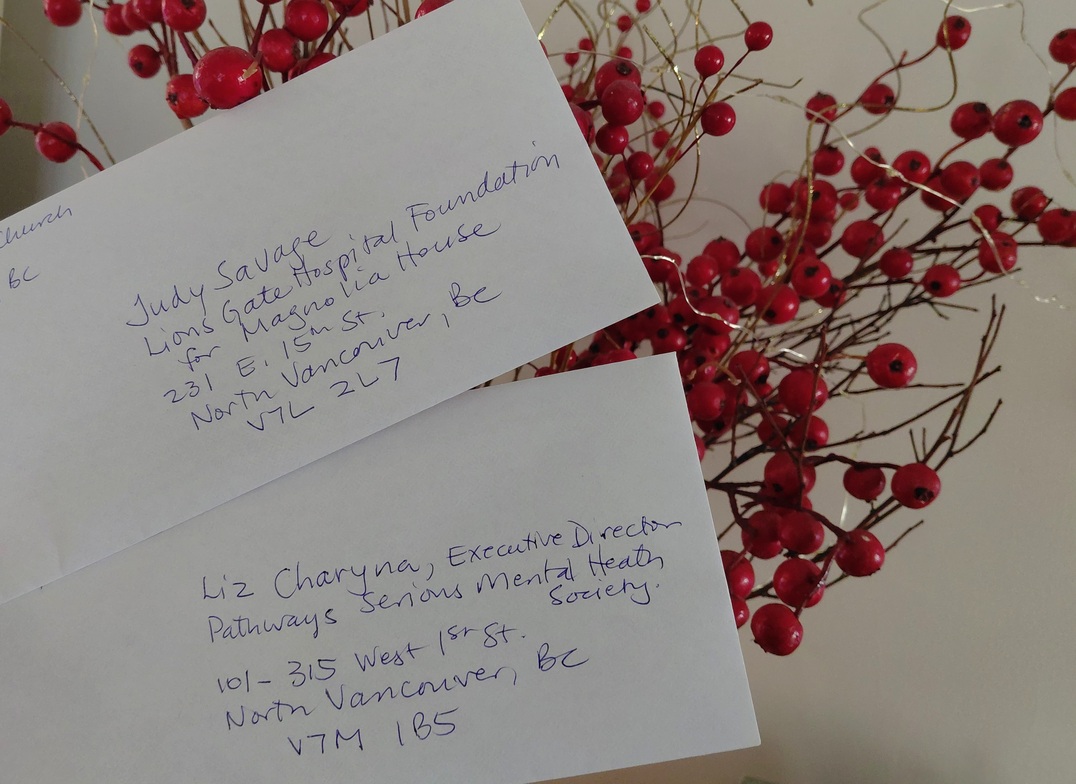 Church
BC
Judy Savage
Lions Gate Hospital Foundation
for Magnolia House
231 E. 15th St.
North Vancouver, BC
V7L 2L7
Liz Charyna, Executive Director
Pathways Serious Mental Heath
Society.
101- 315 West 1st St.
North Vancouver, BC
V7M 1B5